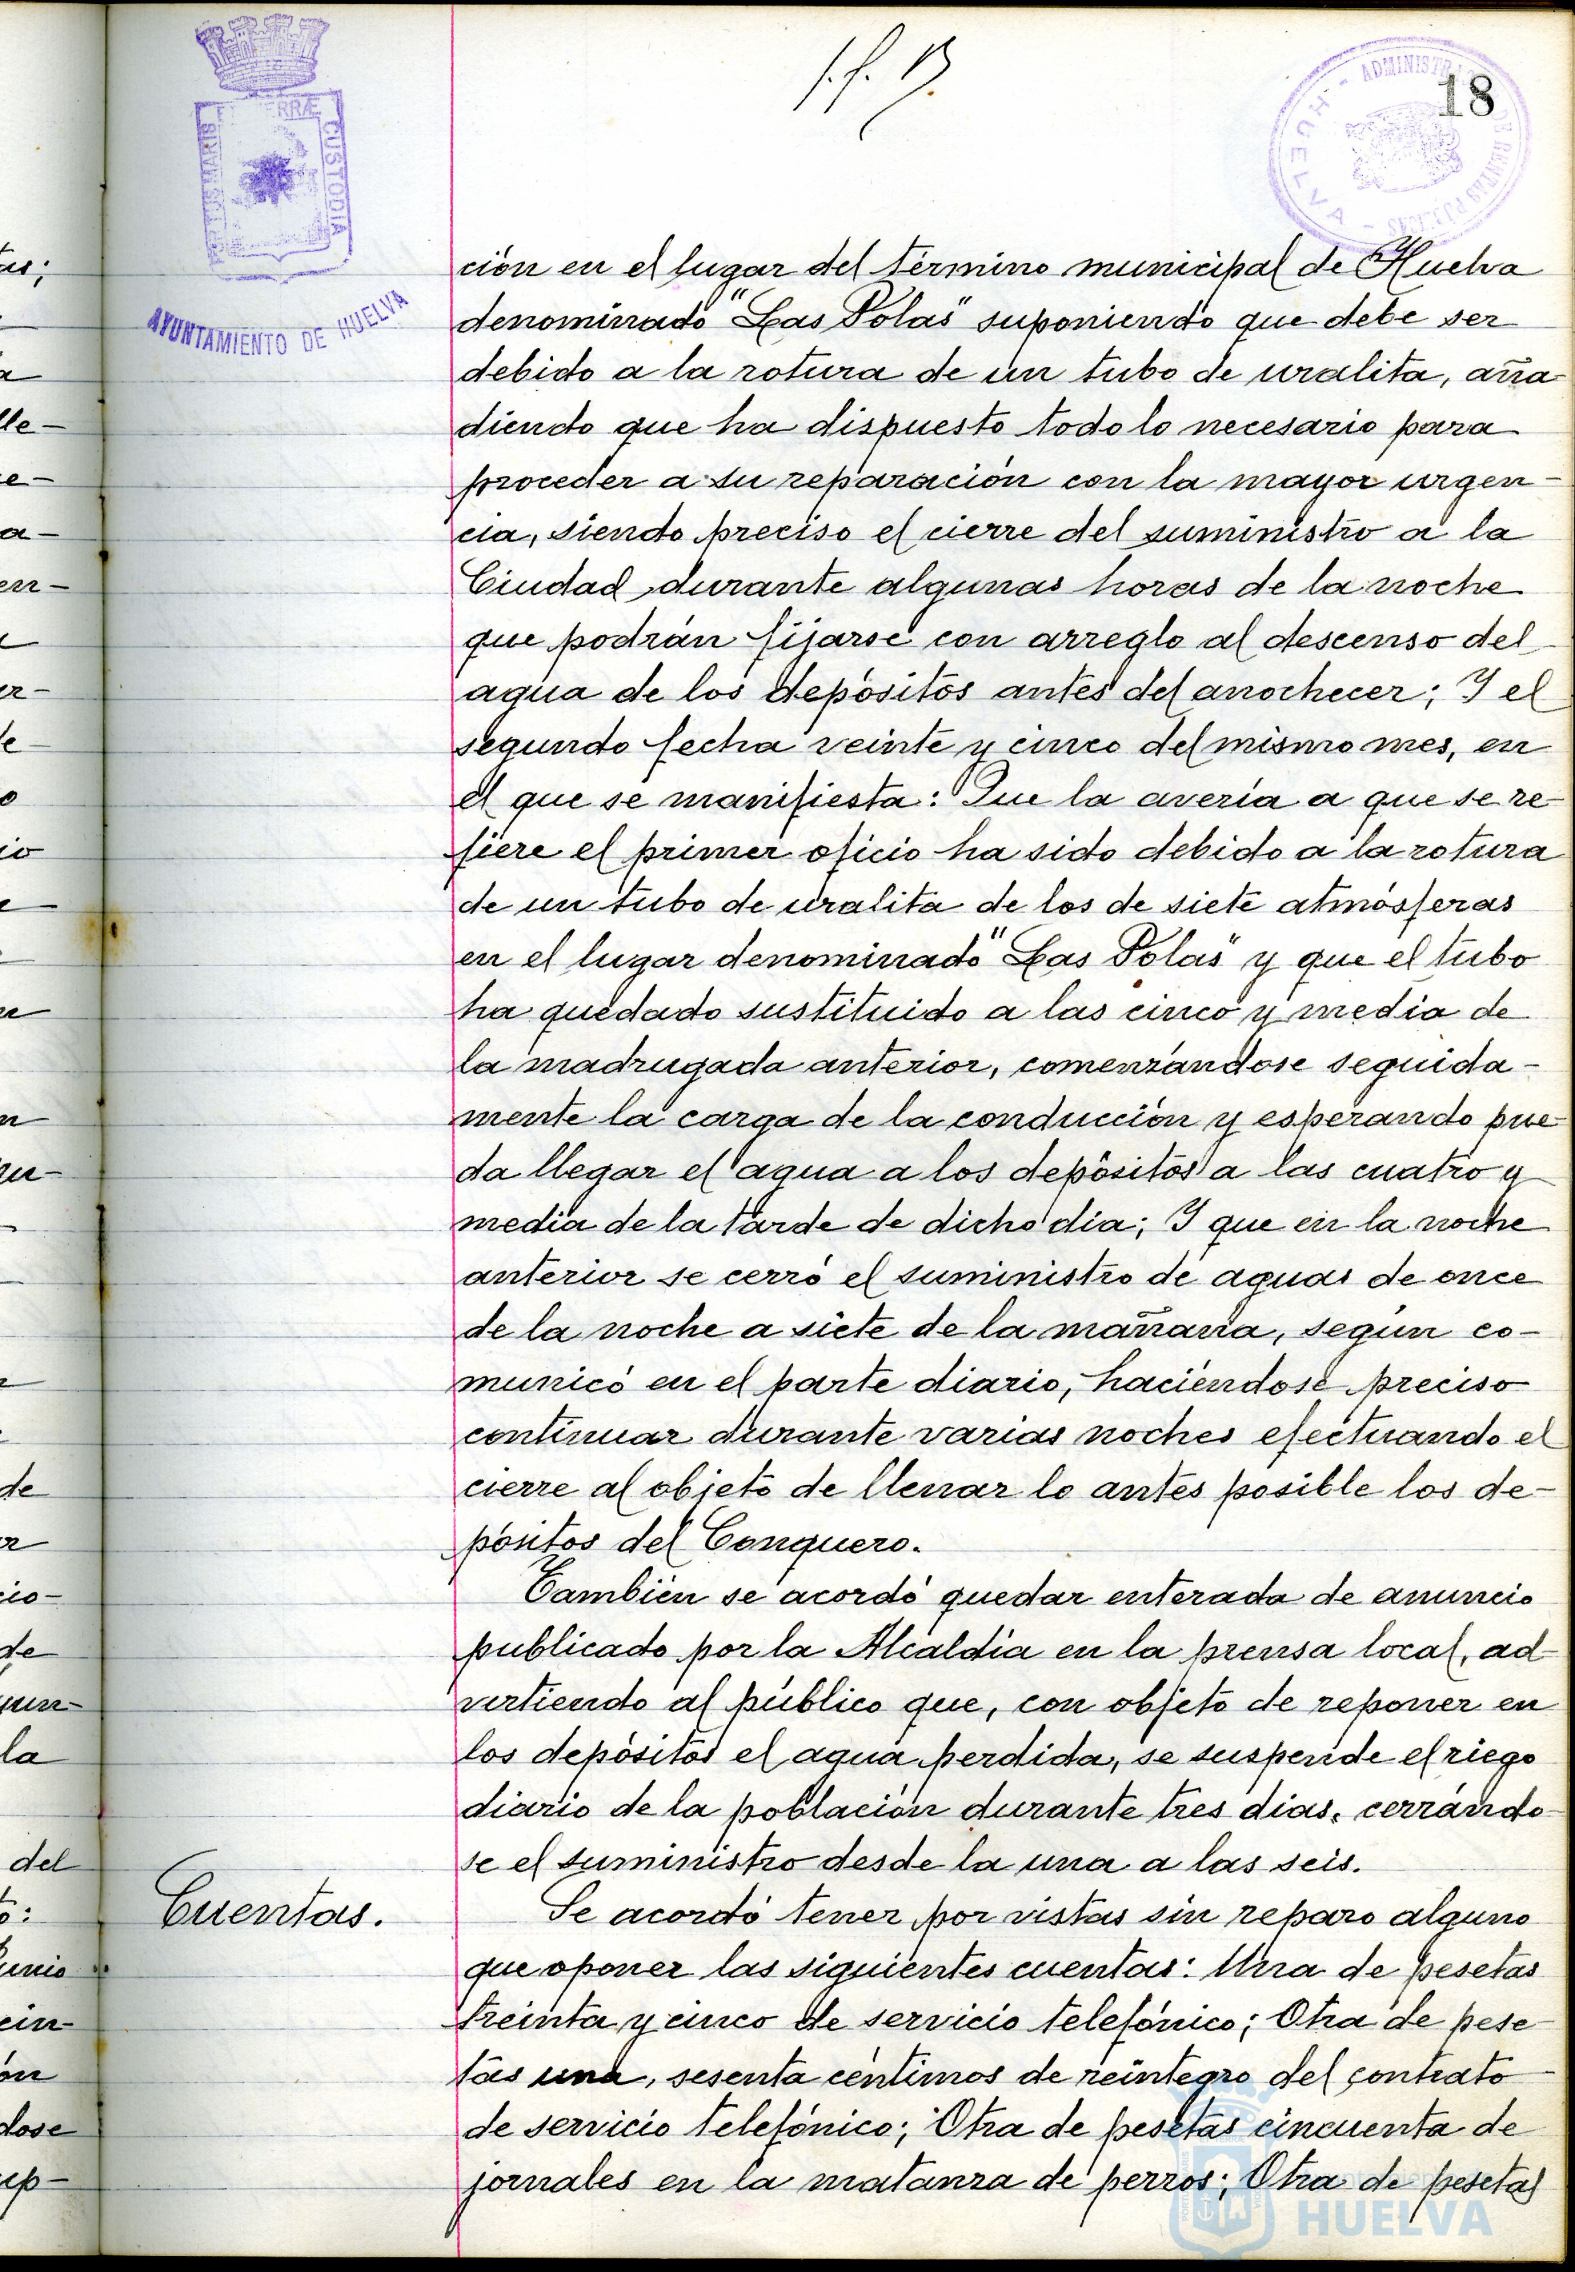 18
TERRÆ
CUSTODIA
MARIS
AYUNTAMIENTO DE HUELVA
HUELVA
ción en el lugar del término municipal de Huelva
denominado "Las Polas" suponiendo que debe ser
debido a la rotura de un tubo de uralita, aña
diendo que ha dispuesto todo lo necesario para
proceder a su reparación con la mayor urgen-
cia, siendo preciso el cierre del suministro a la
Ciudad durante algunas horas de la noche
que podrán fijarse con arreglo al descenso del
agua de los depósitos antes del anochecer; Y el
segundo fecha veinte y cinco del mismo mes, en
el que se manifiesta: Que la avería a que se re-
fiere el primer oficio ha sido debido a la rotura
de un tubo de uralita de los de siete atmósferas
en el lugar denominado "Las Polas" y que el tubo
ha quedado sustituido a las cinco y media de
la madrugada anterior, comenzándose seguida-
mente la carga de la conducción y esperando pue-
da llegar el agua a los depósitos a las cuatro y
media de la tarde de dicho día; Y que en la noche
anterior se cerró el suministro de aguas de once
de la noche a siete de la mañana, según co-
municó en el parte diario, haciéndose preciso
continuar durante varias noches efectuando el
cierre al objeto de llenar lo antes posible los de-
pósitos del Conquero.
También se acordó quedar enterada de anuncio
publicado por la Alcaldía en la prensa local, ad-
virtiendo al público que, con objeto de reponer en
los depósitos el agua perdida, se suspende el riego
diario de la población durante tres días, cerrándo-
se el suministro desde la una a las seis.
Cuentas.
Se acordó tener por vistas sin reparo alguno
que oponer las siguientes cuentas: Una de pesetas
treinta y cinco de servicio telefónico; Otra de pese-
tas una, sesenta céntimos de reintegro del contrato
de servicio telefónico; Otra de pesetas cincuenta de
jornales en la matanza de perros; Otra de pesetas
HUELVA